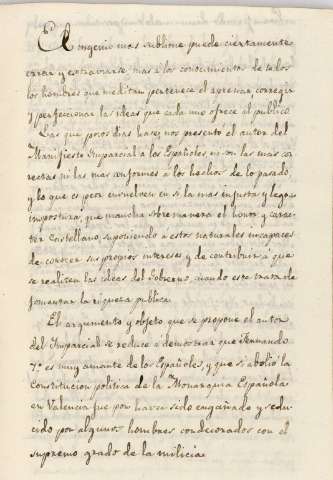 El ingenio mas sublime puede ciertamente
errar y estraviarse, mas á los conocimientos de todos
los hombres que meditan pertenece el apreciar, corregir
y perfeccionar las ideas que cada uno ofrece al publico.
Las que pocos dias hace, nos presentó el autor del
Manifiesto Imparcial á los Españoles ni son las mas cor-
rectas ni las mas conformes á los hechos de lo pasado,
y lo que es peor envuelven en sí la mas injusta y
impostura, que mancha sobre manera el honor y carac-
ter Castellano, suponiendo á estos naturales incapaces
de conocer sus propios intereses y de contribuir á que
se realicen las ideas del Gobierno, cuando este trata de
fomentar la riqueza publica.
El argumento y objeto que se propone el autor
del Imparcial se reduce á demostrar que Fernando
7º es muy amante de los Españoles, y que si abolió la
Constitucion politica de la Monarquia Española
en Valencia fue por haber sido engañado y sedu-
cido por algunos hombres condecorados con el
supremo grado de la milicia.